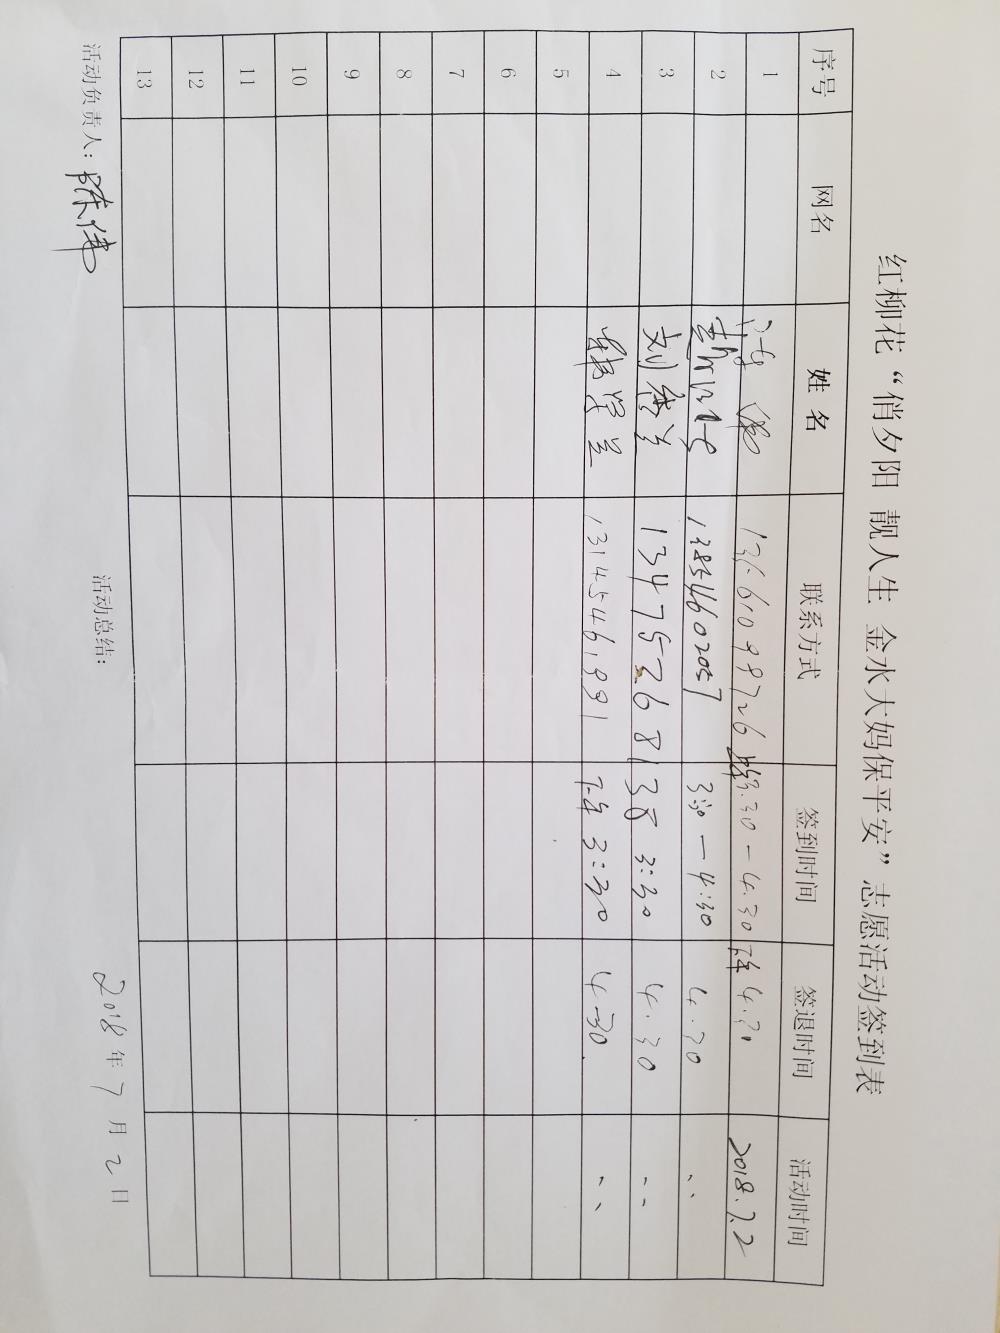 红柳花“俏夕阳 靓人生 金水大妈保平安”志愿活动签到表
序号 网名 姓名 联系方式 签到时间 签退时间 活动时间
1 4.30 2018.7.2
2 13854602057 3:30-4:30 4.30 〃
3 刘秀兰 13475268138 3:30 4.30 〃
4 韩学兰 13145461991 下午3:30 4-30 〃
5
6
7
8
9
10
11
12
13
活动负责人：陈伟 活动总结： 2018年7月2日